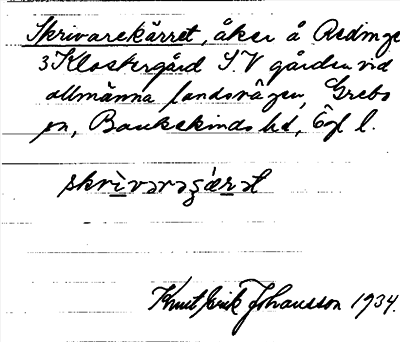 Skrivarekärret, åker å Redinge
3 Klostergård S.V gården vid
allmänna landsvägen, Grebo
sn, Bankekinds hd, Ögl l.
skrìvarəʂæ̀rət
Knut Erik Johansson 1934.